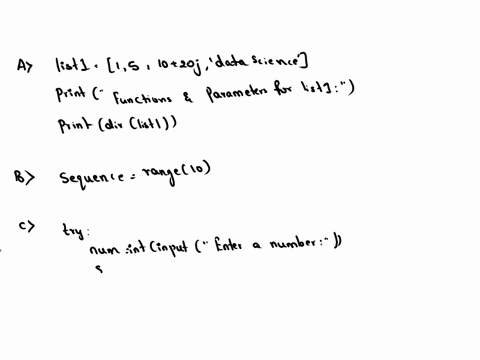 A> list1 = [1,5, 10+20j, 'data science']
Print (" Functions & Parameters for list1:")
Print (dir (list1))
B> Sequence = range(10)
C> try:
num=int(input (" Enter a number:"))
s